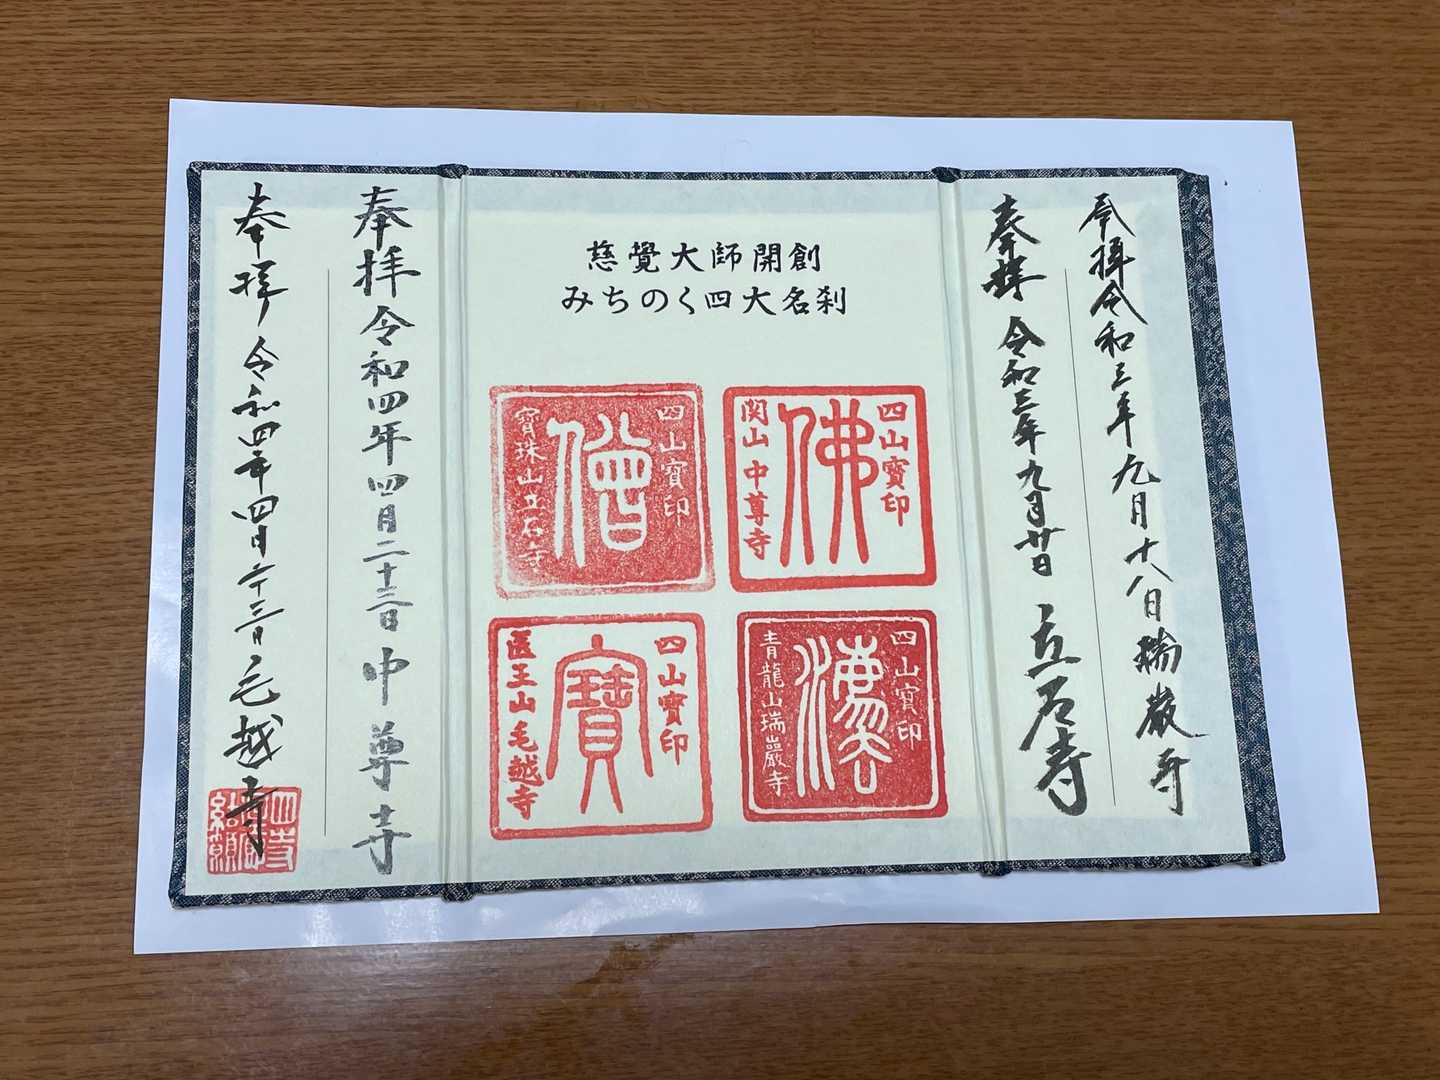 奉拝 令和三年九月十八日 瑞巌寺
奉拝 令和三年九月廿日 立石寺
慈覺大師開創
みちのく四大名刹
四山寳印
佛
関山 中尊寺
四山寳印
僧
寳珠山立石寺
四山寳印
青龍山瑞巖寺
四山寳印
寶
医王山毛越寺
奉拝 令和四年四月二十三日 中尊寺
奉拝 令和四年四月二十三日 毛越寺